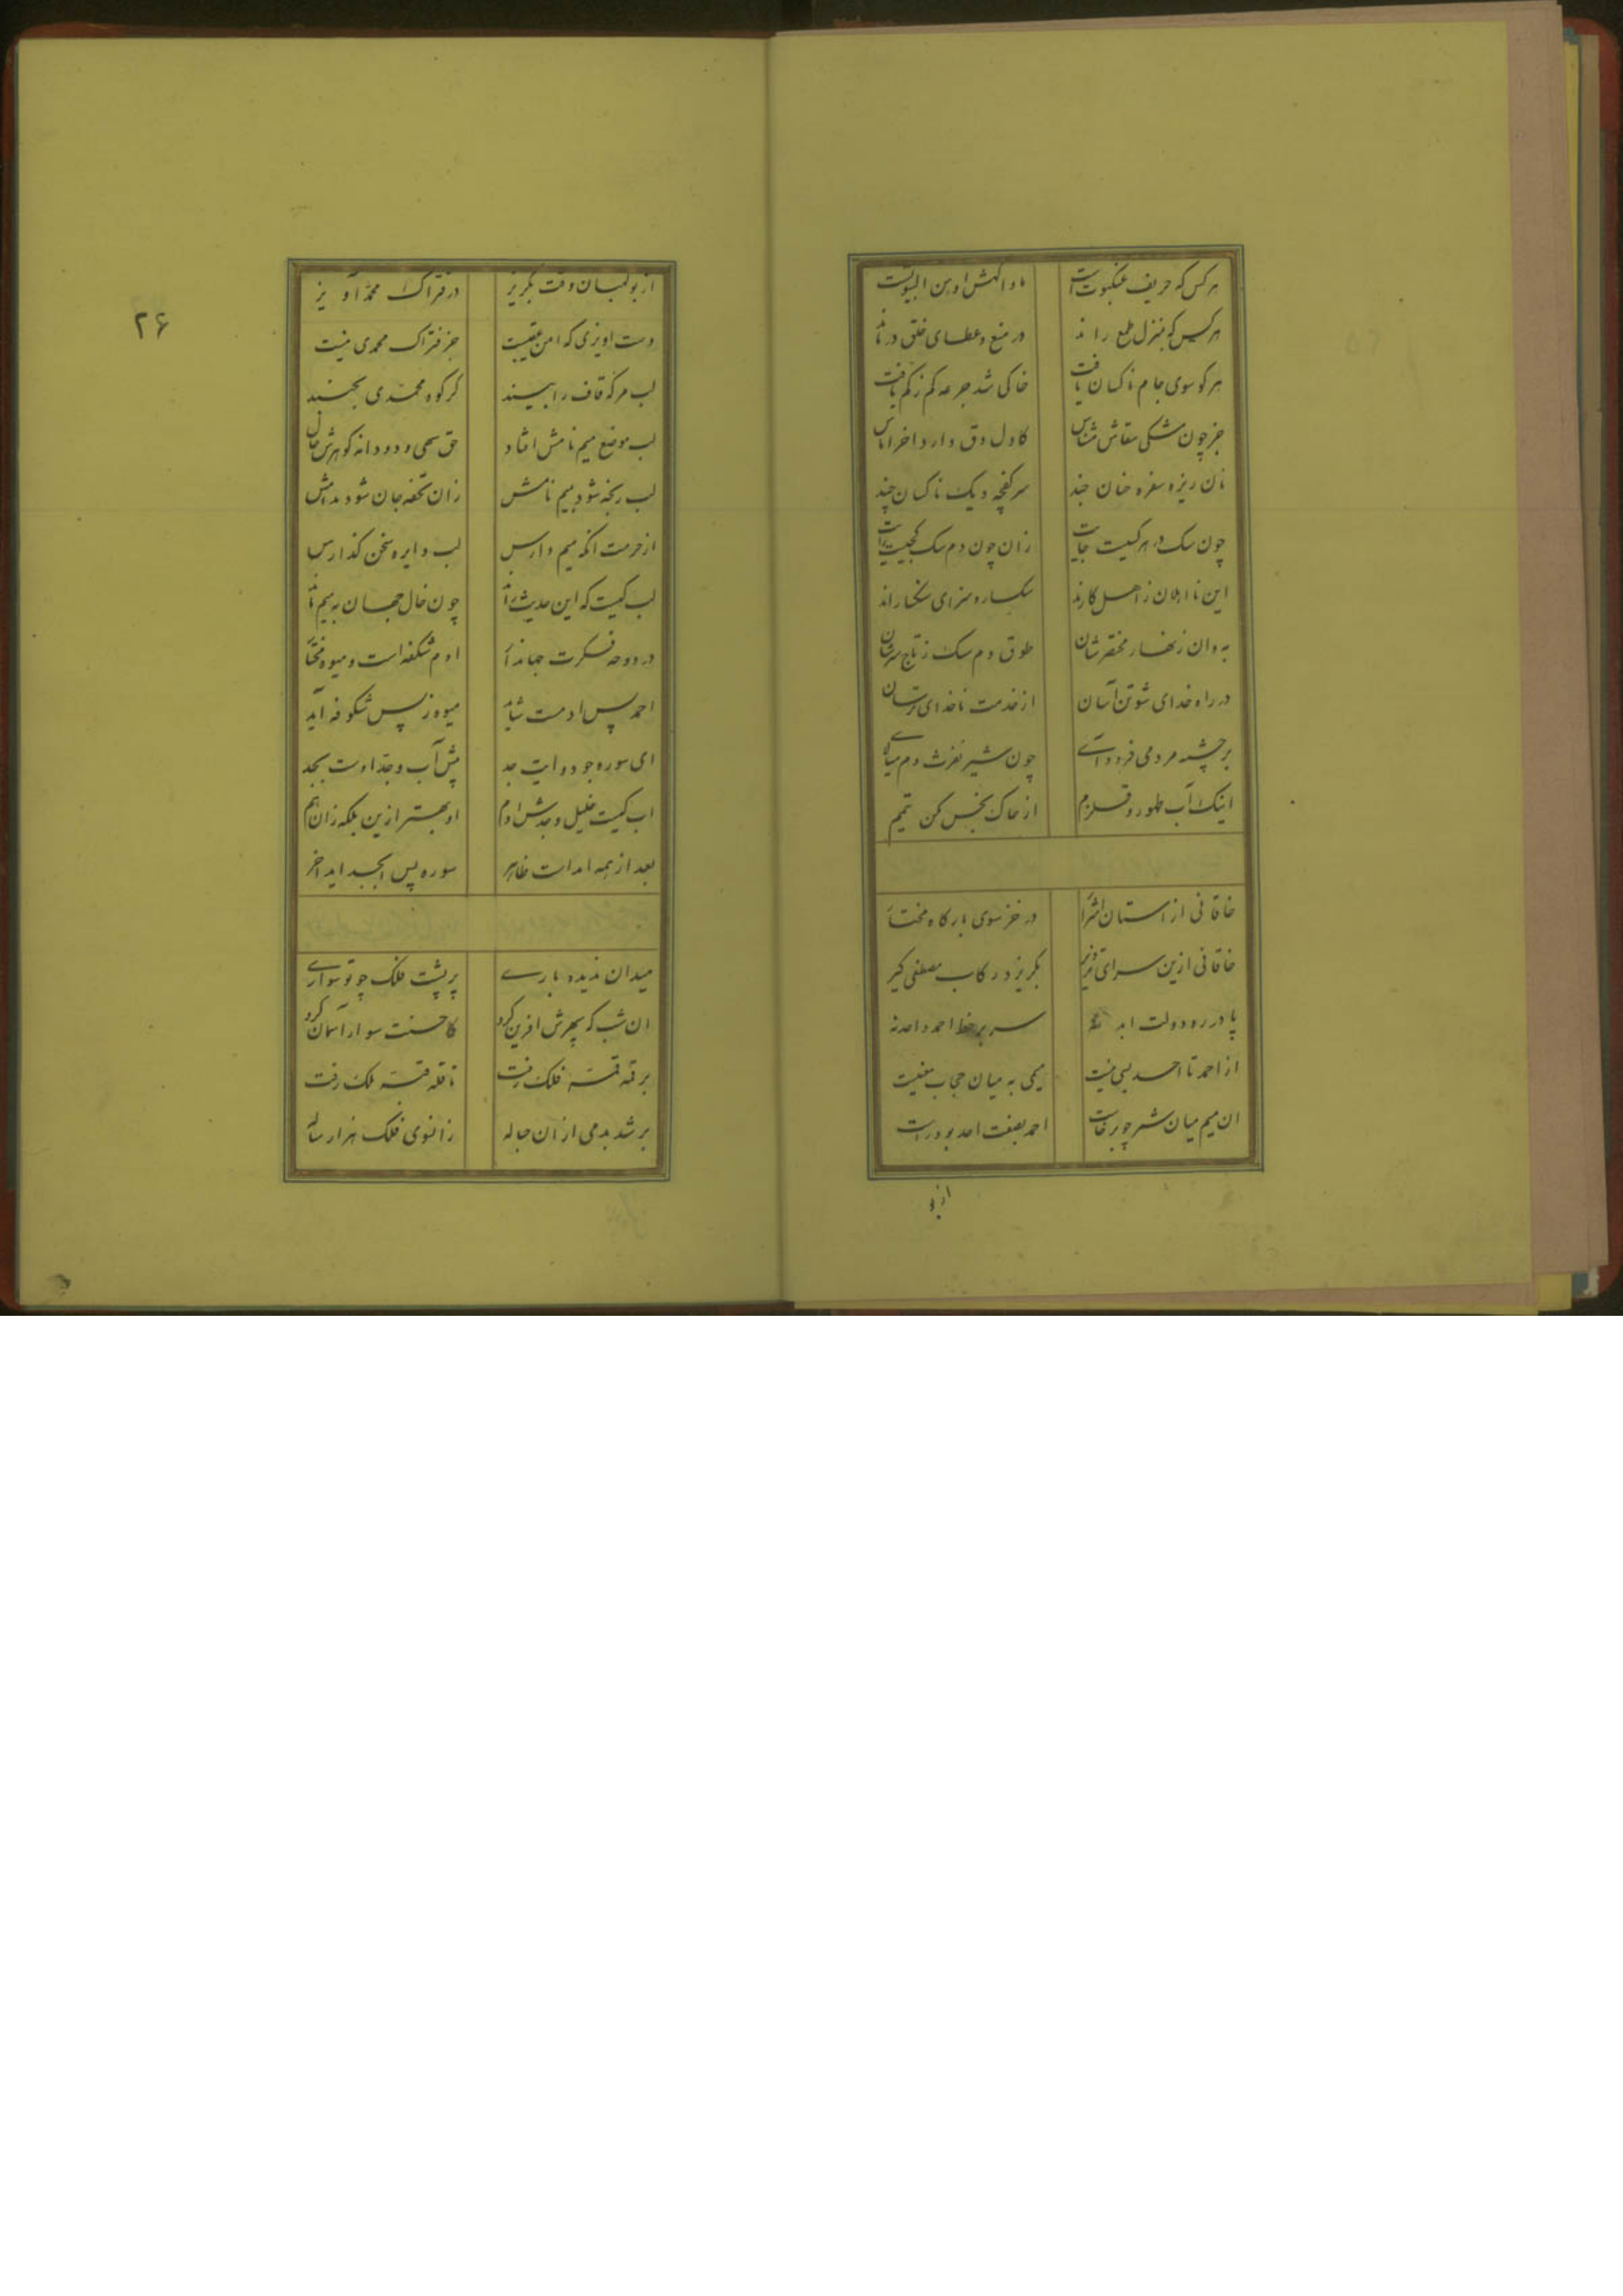 هرکس که حریف عنکبوت است ماواگهش اوهن البیوت
هرکس که بمنزل طمع راند در منع و عطای خلق درماند
هرکو سوی جام ناکسان یافت خاکی شد جرعه کم زکم یافت
جز چون مشکی سقاش مشناس کاول دق دارد اخر اماس
نان ریزه سفره خسان چند سرکفچه دیک ناکسان چند
چون سک در هر کسیت جایست زان چون دم سک کجیت
این نااهلان ز اهل کارند سکسار و سزای سنکسارند
به دان ز مختصرشان طوق دم سک ز تاج سرشان
در راه خدای شو تن آسان از خدمت ناخدای ترسان
برچشمه مردمی فرودآے چون شیر نفرت دم میالای
اینک آب طهور و قلزم از خاک نجس مکن تیمم
خاقانی از استان اشرار در خز سوی بارکاه مختار
خاقانی ازین سرای تزویر بکریز و رکاب مصطفی کیر
پا در ره دولت ابد نه سر بر خط احمد و احد نه
از احمد تا احد بسی نیست میمی به میان حجاب معنیست
ان میم میان شر چو برخاست احمد بصفت احد بود راست
از بو
۲۶
از بولهبان وقت بکریز در فتراک محمد آویز
دست اویزی که امن عقبیست جز فتراک محمدی نیست
لب مرکه قاف را ببیند کر کوه محمدی بجنبد
لب موضع میم نامش افتاد حق سی و دو دانه کوهرش
لب رنجه شود بمیم نامش زان تحفه جان شود مدامش
از حرمت انکه میم دارس لب دایره سخن کذارس
لب کیست که این حدیث راند چون خال جهان به میم ماند
در دوحه فکرت جهاندار ادم شکفه است و میوه مختار
احمد پس ادمست شاید میوه ز پس شکوفه آید
ای سوره جود و ایت جد پیش آب و جد اوت بجد
اب کیست خلیل و جدش ادم او بهتر ازین بلکه زان هم
بعد از همه امد است ظاهر سوره پس ابجد اید اخر
میدان ندیده بارے بر پشت فلک چو تو سوارے
ان شب که سپهرش افرین کرد کاحسنت سوار آسمان کرد
بر قمه قبه فلک رفت تا قله قبه ملک رفت
بر شد بدمی از ان حباله زانوی فلک هزار ساله